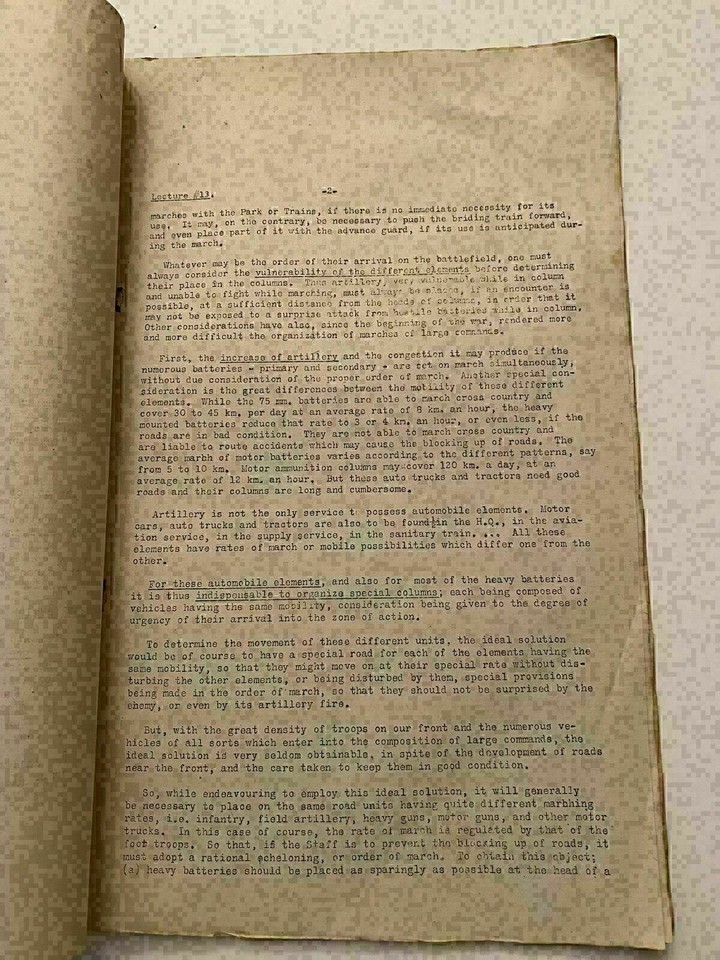 Lecture #13.
-2-
marches with the Park or Trains, if there is no immediate necessity for its
use. It may, on the contrary, be necessary to push the briding train forward,
and even place part of it with the advance guard, if its use is anticipated dur-
ing the march.
Whatever may be the order of their arrival on the battlefield, one must
always consider the vulnerability of the different elements before determining
their place in the columns. Thus artillery, very vulnerable while in column
and unable to fight while marching, must always be places, if an encounter is
possible, at a sufficient distance from the heads of columns, in order that it
may not be exposed to a surprise attack from hostile batteries while in column.
Other considerations have also, since the beginning of the war, rendered more
and more difficult the organization of marches of large commands.
First, the increase of artillery and the congestion it may produce if the
numerous batteries - primary and secondary - are set on march simultaneously,
without due consideration of the proper order of march. Another special con-
sideration is the great differences between the motility of these different
elements. While the 75 mm. batteries are able to march cross country and
cover 30 to 45 km. per day at an average rate of 8 km. an hour, the heavy
mounted batteries reduce that rate to 3 or 4 km. an hour, or even less, if the
roads are in bad condition. They are not able to march cross country and
are liable to route accidents which may cause the blocking up of roads. The
average marbh of motor batteries varies according to the different patterns, say
from 5 to 10 km. Motor ammunition columns may cover 120 km. a day, at an
average rate of 12 km. an hour. But these auto trucks and tractors need good
roads and their columns are long and cumbersome.
Artillery is not the only service t possess automobile elements. Motor
cars, auto trucks and tractors are also to be found in the H.Q., in the avia-
tion service, in the supply service, in the sanitary train. ... All these
elements have rates of march or mobile possibilities which differ one from the
other.
For these automobile elements, and also for most of the heavy batteries
it is thus indispensable to organize special columns; each being composed of
vehicles having the same mobility, consideration being given to the degree of
urgency of their arrival into the zone of action.
To determine the movement of these different units, the ideal solution
would be of course to have a special road for each of the elements having the
same mobility, so that they might move on at their special rate without dis-
turbing the other elements, or being disturbed by them, special provisions
being made in the order of march, so that they should not be surprised by the
enemy, or even by its artillery fire.
But, with the great density of troops on our front and the numerous ve-
hicles of all sorts which enter into the composition of large commands, the
ideal solution is very seldom obtainable, in spite of the development of roads
near the front, and the care taken to keep them in good condition.
So, while endeavouring to employ this ideal solution, it will generally
be necessary to place on the same road units having quite different marhhing
rates, i.e. infantry, field artillery, heavy guns, motor guns, and other motor
trucks. In this case of course, the rate of march is regulated by that of the
foot troops. So that, if the Staff is to prevent the blocking up of roads, it
must adopt a rational echeloning, or order of march. To obtain this object:
(a) heavy batteries should be placed as sparingly as possible at the head of a